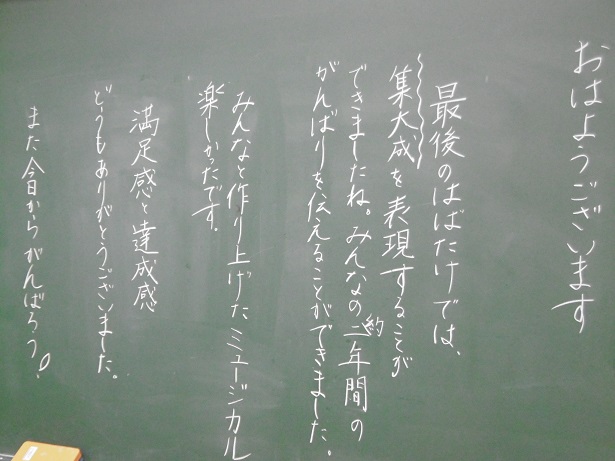 おはようございます
最後のはばたけでは、
集大成を表現することが
できましたね。みんなの約二年間の
がんばりを伝えることができました。
みんなと作り上げたミュージカル
楽しかったです。
満足感と達成感
どうもありがとうございました。
また今日からがんばろう!